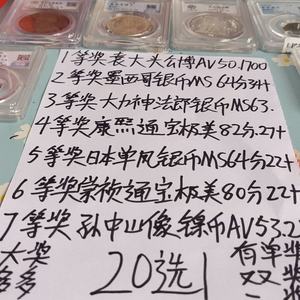 1等奖袁大头公博AV50.1700
2等奖墨西哥银币MS64分34+
3等奖大力神法郎银币MS63.
4等奖康熙通宝极美82分.27+
5等奖日本单凤银币MS64分22+
6等奖崇祯通宝极美80分22+
7等奖孙中山像镍币AV53.2
大奖多多
20选1
有单
双